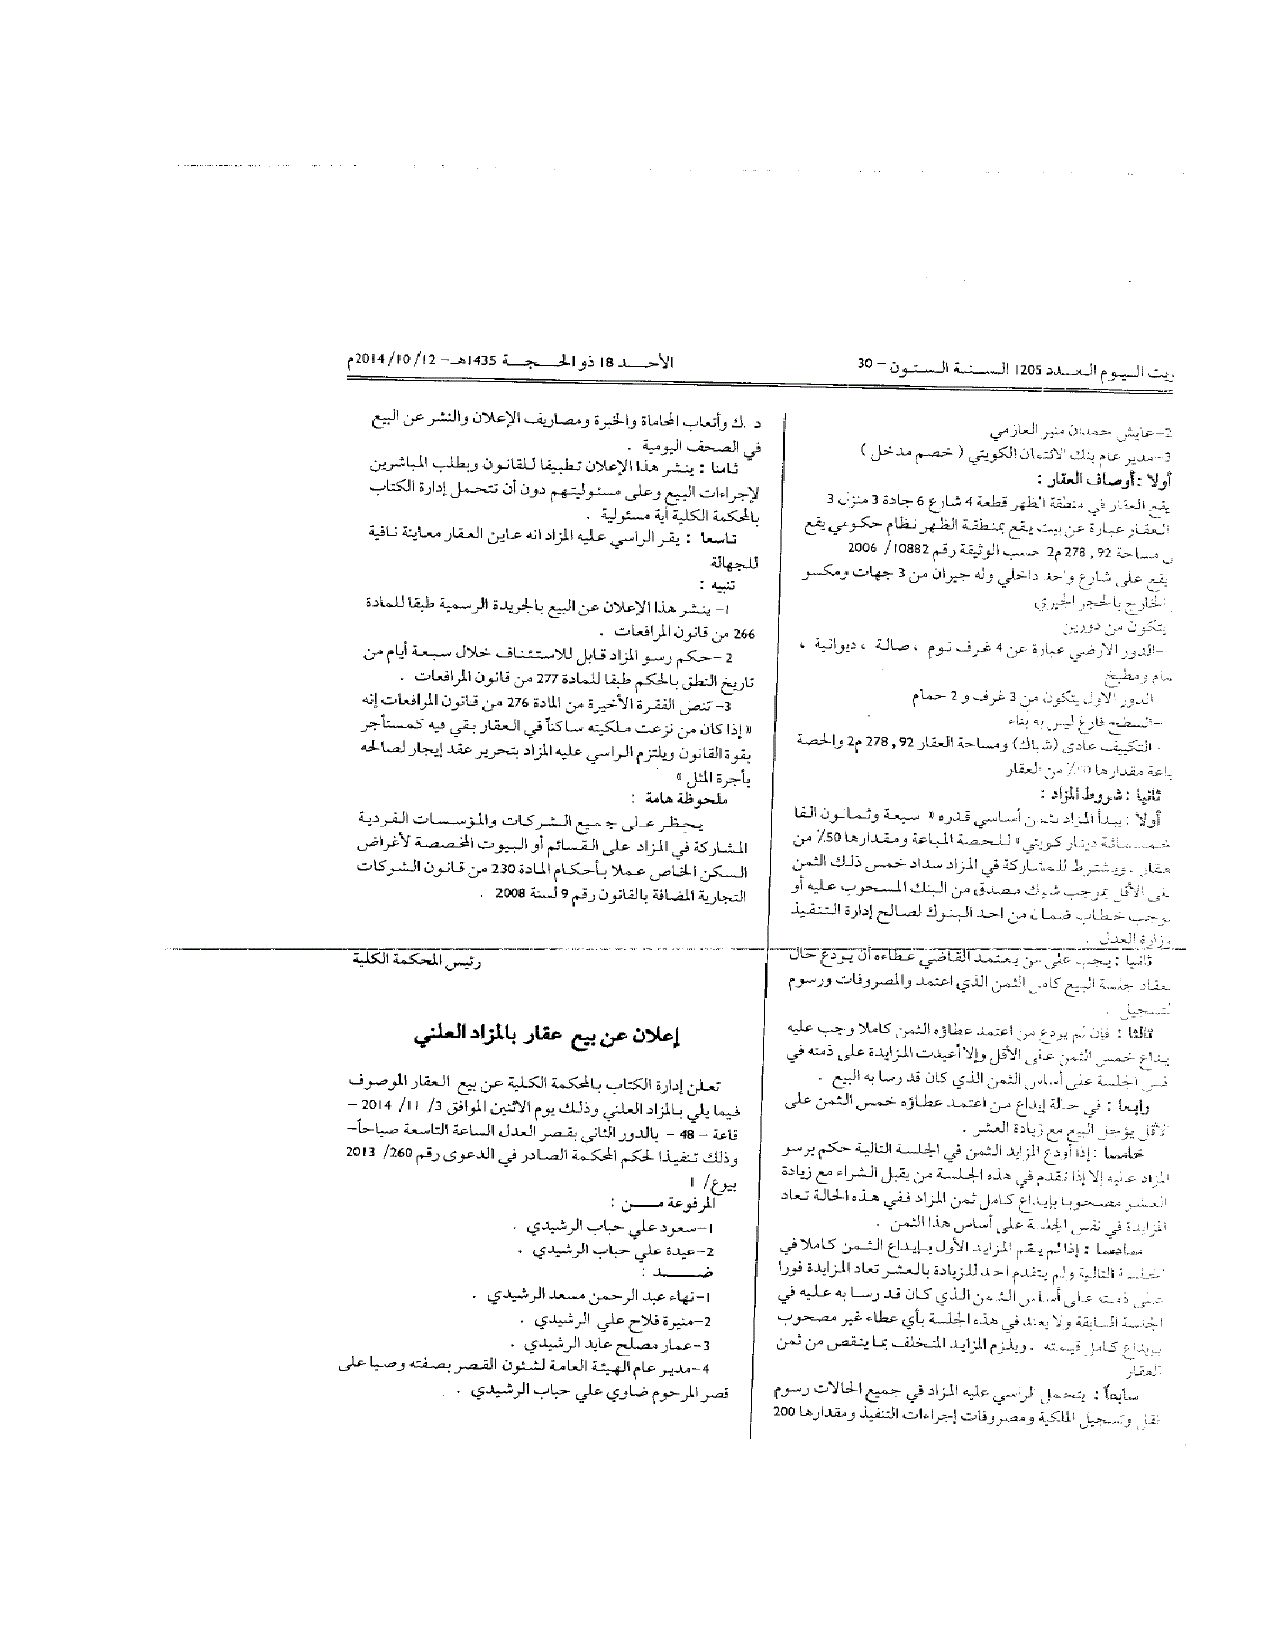 ريت اليوم العدد 1205 السنة الستون - 30
الأحد 18 ذو الحجة 1435هـ - 12/ 10/ 2014م
2-عايش حمدان منير العازمي
3-مدير عام بنك الائتمان الكويتي ( خصم مدخل )
أولا : أوصاف العقار :
يقع العقار في منطقة الظهر قطعة 4 شارع 6 جادة 3 منزل 3
العقار عبارة عن بيت يقع بمنطقة الظهر نظام حكومي يقع
مساحة 92, 278 م2 حسب الوثيقة رقم 10882/ 2006
يقع على شارع واحد داخلي وله جيران من 3 جهات ومكسو
الخارج بالحجر الجيري
يتكون من دورين
-الدور الأرضي عبارة عن 4 غرف نوم ، صالة ، ديوانية ،
حمام ومطبخ
الدور الأول يتكون من 3 غرف و 2 حمام
-السطح فارغ ليس به بناء
- التكييف عادي (شباك) ومساحة العقار 92, 278 م2 والحصة
باعة مقدارها 50٪ من العقار
ثانيا : شروط المزاد :
أولا : يبدأ المزاد بثمن أساسي قدره « سبعة وثمانون الفا
خمسمائة دينار كويتي » للحصة المباعة ومقدارها 50٪ من
عقار . ويشترط للمشاركة في المزاد سداد خمس ذلك الثمن
على الأقل بموجب شيك مصدق من البنك المسحوب عليه أو
بوجب خطاب ضمان من احد البنوك لصالح إدارة التنفيذ
وزارة العدل .
ثانيا : يجب على من يعتمد القاضي عطاءه أن يودع حال
عقاد جلسة البيع كامل الثمن الذي اعتمد والمصروفات ورسوم
لتسجيل .
ثالثا : فإن لم يودع من اعتمد عطاؤه الثمن كاملا وجب عليه
يداع خمس الثمن على الأقل وإلا أعيدت المزايدة على ذمته في
فس الجلسة على أساس الثمن الذي كان قد رسا به البيع .
رابعا : في حالة إيداع من اعتمد عطاؤه خمس الثمن على
لأقل يؤجل البيع مع زيادة العشر .
خامسا : إذا أودع المزايد الثمن في الجلسة التالية حكم برسو
المزاد عليه إلا إذا تقدم في هذه الجلسة من يقبل الشراء مع زيادة
العشر مصحوبا بإيداع كامل ثمن المزاد ففي هذه الحالة تعاد
المزايدة في نفس الجلسة على أساس هذا الثمن .
سادسا : إذا لم يقم المزايد الأول بإيداع الثمن كاملا في
لجلسة التالية ولم يتقدم احد للزيادة بالعشر تعاد المزايدة فورا
على ذمته على أساس الثمن الذي كان قد رسا به عليه في
الجلسة السابقة ولا يعتد في هذه الجلسة بأي عطاء غير مصحوب
بإيداع كامل قيمته . ويلزم المزايد المتخلف بما ينقص من ثمن
العقار
سابعاً : يتحمل الراسي عليه المزاد في جميع الحالات رسوم
نقل وتسجيل الملكية ومصروفات إجراءات التنفيذ ومقدارها 200
د .ك وأتعاب المحاماة والخبرة ومصاريف الإعلان والنشر عن البيع
في الصحف اليومية .
ثامنا : ينشر هذا الإعلان تطبيقا للقانون وبطلب المباشرين
لإجراءات البيع وعلى مسئوليتهم دون أن تتحمل إدارة الكتاب
بالمحكمة الكلية أية مسئولية .
تاسعا : يقر الراسي عليه المزاد انه عاين العقار معاينة نافية
للجهالة
تنبيه :
1- ينشر هذا الإعلان عن البيع بالجريدة الرسمية طبقا للمادة
266 من قانون المرافعات .
2-حكم رسو المزاد قابل للاستئناف خلال سبعة أيام من
تاريخ النطق بالحكم طبقا للمادة 277 من قانون المرافعات .
3-تنص الفقرة الأخيرة من المادة 276 من قانون المرافعات إنه
« إذا كان من نزعت ملكيته ساكناً في العقار بقي فيه كمستأجر
بقوة القانون ويلتزم الراسي عليه المزاد بتحرير عقد إيجار لصالحه
بأجرة المثل »
ملحوظة هامة :
يحظر على جميع الشركات والمؤسسات الفردية
المشاركة في المزاد على القسائم أو البيوت المخصصة لأغراض
السكن الخاص عملا بأحكام المادة 230 من قانون الشركات
التجارية المضافة بالقانون رقم 9 لسنة 2008 .
رئيس المحكمة الكلية
إعلان عن بيع عقار بالمزاد العلني
تعلن إدارة الكتاب بالمحكمة الكلية عن بيع العقار الموصوف
فيما يلي بالمزاد العلني وذلك يوم الاثنين الموافق 3/ 11/ 2014 -
قاعة - 48 - بالدور الثاني بقصر العدل الساعة التاسعة صباحاً-
وذلك تنفيذا لحكم المحكمة الصادر في الدعوى رقم 260/ 2013
بيوع/ 1
المرفوعة مـــن :
1-سعود علي حباب الرشيدي .
2-عيدة علي حباب الرشيدي .
ضـــــد :
1-نهاء عبد الرحمن مسعد الرشيدي .
2-منيرة فلاح علي الرشيدي .
3-عمار مصلح عايد الرشيدي .
4-مدير عام الهيئة العامة لشئون القصر بصفته وصيا على
قصر المرحوم ضاوي علي حباب الرشيدي .